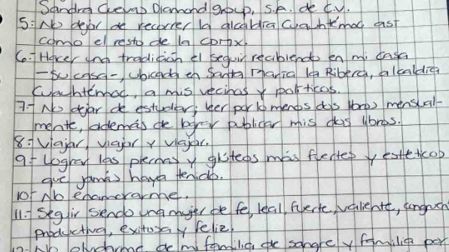 Sandra Cuevas Diamond group, S.A. de C.V.
5.- No dejar de recorrer la alcaldía Cuauhtémoc así
como el resto de la CDMX.
6.- Hacer una tradición el seguir recibiendo en mi casa
-su casa-, ubicada en Santa María la Ribera, alcaldía
Cuauhtémoc, a mis vecinos y políticos.
7.- No dejar de estudiar, leer por lo menos dos libros mensual-
mente, además de lograr publicar mis dos libros.
8.- Viajar, viajar y viajar.
9.- Lograr las piernas y glúteos más fuertes y estéticos
que jamás haya tenido.
10.- No enamorarme.
11.- Seguir siendo una mujer de fe, leal, fuerte, valiente, congruente
productiva, exitosa y feliz.
12.- No olvidarme de mi familia de sangre y familia por